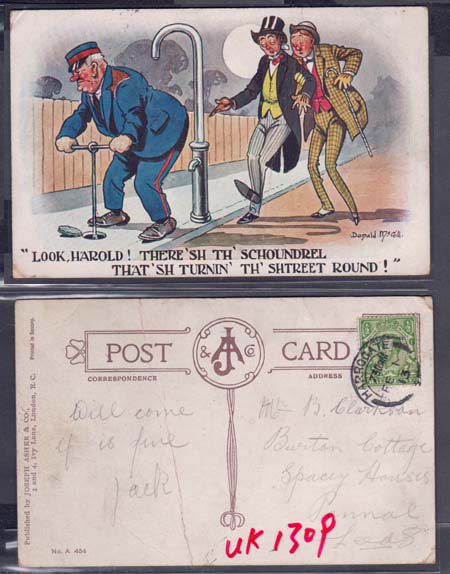 "LOOK, HAROLD! THERE'SH TH' SCHOUNDREL
THAT'SH TURNIN' TH' SHTREET ROUND!"
Donald McGill
POST
& JA Co
CARD
CORRESPONDENCE
ADDRESS
Printed in Saxony.
Published by JOSEPH ASHER & CO.,
3 and 4, Ivy Lane, London, E.C.
½ ½
HARROGATE
FE
Will come
if is fine
Jack
Mr B. Clarkson
Burton Cottage
Spacey Houses
Pannal
Leeds
No. A 454
UK 1309